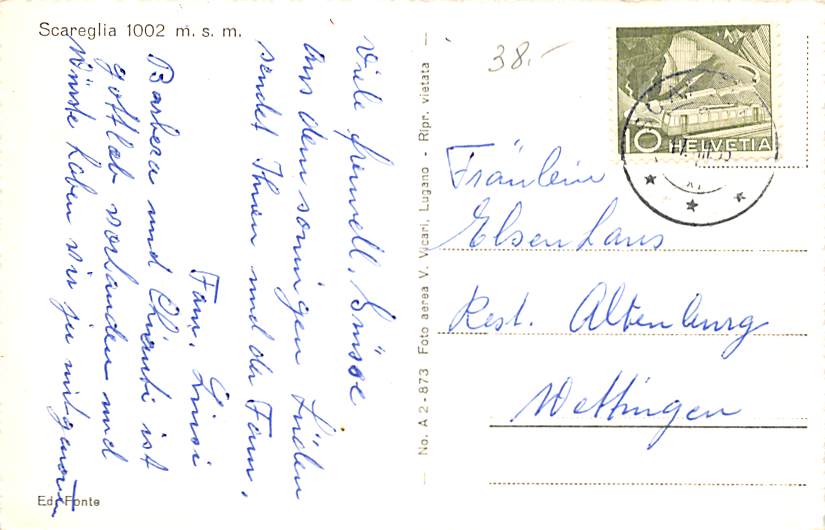 Scareglia 1002 m. s. m.
Viele freundl. Grüsse
aus dem sonnigen Süden
sendet Ihnen und der Fam.
Fam. Luisi
Barbera und Chianti ist
gottlob vorhanden und
Würste haben wir ja mitgenommen
Ed. Fonte
No. A 2-873 Foto aerea V. Vicari, Lugano - Ripr. vietata
38.-
10 HELVETIA
Fräulein
Elsen Laus
Rest. Altenburg
Wettingen